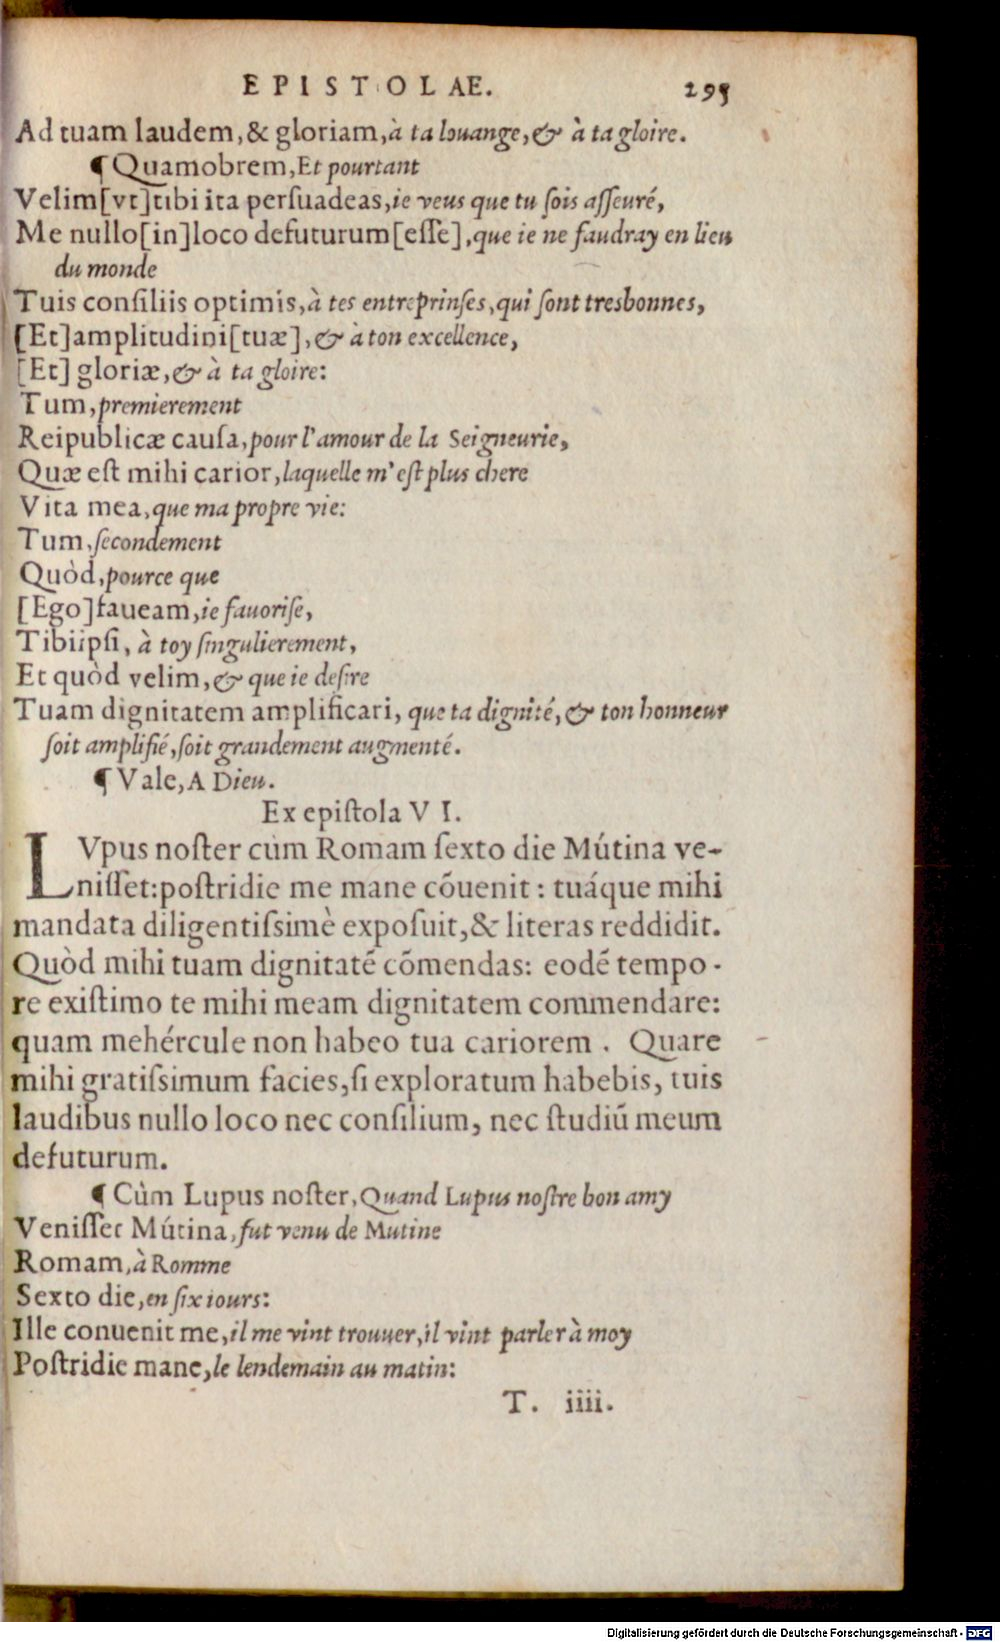 EPISTOLAE. 295
Ad tuam laudem, & gloriam, à ta louange, & à ta gloire.
¶ Quamobrem, Et pourtant
Velim[vt]tibi ita perſuadeas, ie veus que tu ſois aſſeuré,
Me nullo[in]loco defuturum[eſſe], que ie ne faudray en lieu
du monde
Tuis conſiliis optimis, à tes entreprinſes, qui ſont tresbonnes,
[Et]amplitudini[tuæ], & à ton excellence,
[Et] gloriæ, & à ta gloire:
Tum, premierement
Reipublicæ cauſa, pour l'amour de la Seigneurie,
Quæ eſt mihi carior, laquelle m'eſt plus chere
Vita mea, que ma propre vie:
Tum, ſecondement
Quòd, pource que
[Ego]faueam, ie fauoriſe,
Tibiipſi, à toy ſingulierement,
Et quòd velim, & que ie deſire
Tuam dignitatem amplificari, que ta dignité, & ton honneur
ſoit amplifié, ſoit grandement augmenté.
¶ Vale, A Dieu.
Ex epiſtola VI.
LVpus noſter cùm Romam ſexto die Mútina ve-
niſſet: poſtridie me mane cõuenit: tuáque mihi
mandata diligentiſsimè expoſuit, & literas reddidit.
Quòd mihi tuam dignitatẽ cõmendas: eodẽ tempo-
re exiſtimo te mihi meam dignitatem commendare:
quam mehércule non habeo tua cariorem. Quare
mihi gratiſsimum facies, ſi exploratum habebis, tuis
laudibus nullo loco nec conſilium, nec ſtudiũ meum
defuturum.
¶ Cùm Lupus noſter, Quand Lupus noſtre bon amy
Veniſſet Mútina, fut venu de Mutine
Romam, à Romme
Sexto die, en ſix iours:
Ille conuenit me, il me vint trouuer, il vint parler à moy
Poſtridie mane, le lendemain au matin:
T. iiii.
Digitalisierung gefördert durch die Deutsche Forschungsgemeinschaft - DFG